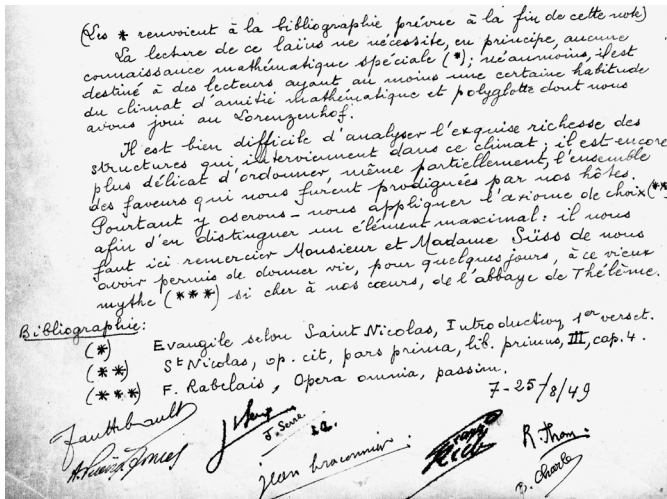 (Les * renvoient à la bibliographie prévue à la fin de cette note)
La lecture de ce laïus ne nécessite, en principe, aucune
connaissance mathématique spéciale (*); néaumoins, il est
destiné à des lecteurs ayant au moins une certaine habitude
du climat d'amitié mathématique et polyglotte dont nous
avons joui au Lorenzenhof.
Il est bien difficile d'analyser l'exquise richesse des
structures qui interviennent dans ce climat; il est encore
plus délicat d'ordonner, même partiellement, l'ensemble
des faveurs qui nous furent prodiguées par nos hôtes.
Pourtant y oserons-nous appliquer l'axiome de choix (**
afin d'en distinguer un élément maximal: il nous
faut ici remercier Monsieur et Madame Süss de nous
avoir permis de donner vie, pour quelques jours, à ce vieux
mythe (***) si cher à nos cœurs, de l'abbaye de Thélème.
Bibliographie:
(*) Evangile selon Saint Nicolas, Introduction, 1er verset.
(**) St Nicolas, op. cit, pars prima, lib. primus, III, cap. 4.
(***) F. Rabelais, Opera omnia, passim.
7-25/8/49
J. Serre
jean braconnier
R. Thom